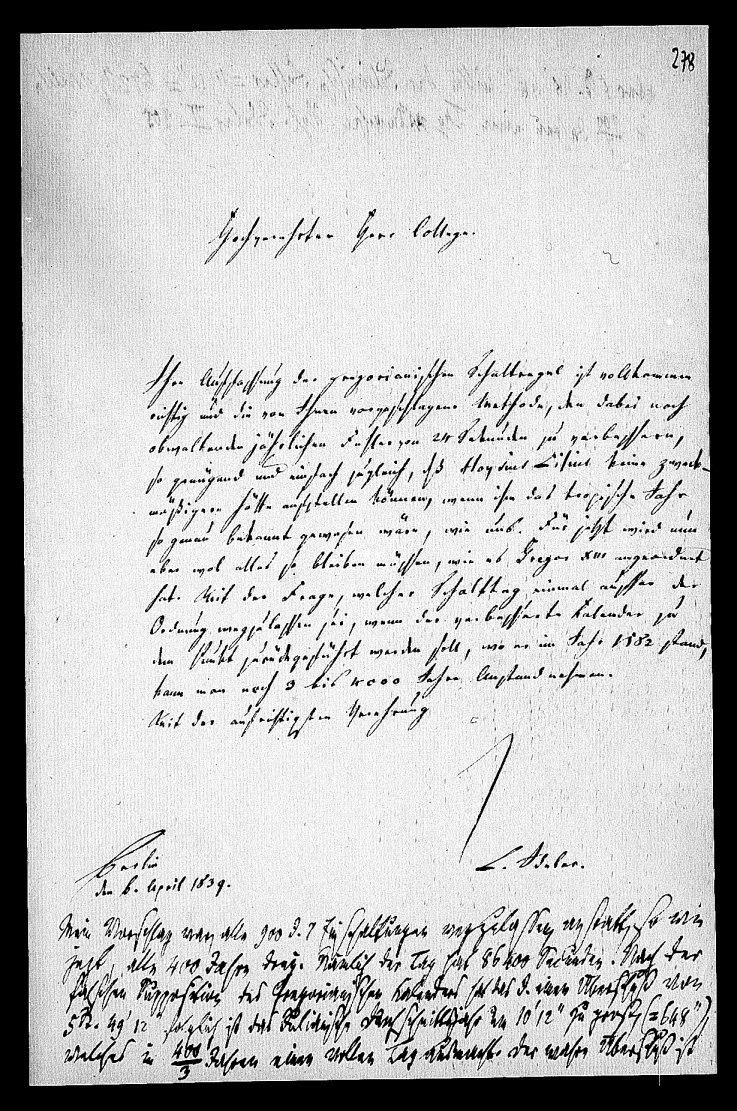 278
Hochgeehrter Herr College.
Ihre Auffassung der gregorianischen Schaltregel ist vollkommen
richtig und die von Ihnen vorgeschlagene Methode, den dabei noch
obwaltenden jährlichen Fehler von 24 Sekunden zu verbessern,
so genügend und einfach zugleich, daß Aloysius Lilius keine zweck-
mäßigere hätte aufstellen können, wenn ihm das tropische Jahr
so genau bekannt gewesen wäre, wie uns. Für jetzt wird nun
aber wol alles so bleiben müssen, wie es Gregor XIII angeordnet
hat. Mit der Frage, welcher Schalttag einmal ausser der
Ordnung wegzulassen sei, wenn der verbesserte Kalender zu
dem Punkt zurückgeführt werden soll, wo er im Jahr 1582 stand,
kann man noch 3 bis 4000 Jahre Anstand nehmen.
Mit der aufrichtigsten Verehrung
L. Ideler.
Berlin
den 6. April 1839.
Mein Vorschlag war, alle 900 J. 7 Einschaltungen wegzulassen anstatt, so wie
jetzt, alle 400 Jahre drey. Nämlich der Tag hat 86400 Secunden. Nach der
falschen Supposition des Gregorianischen Kalenders hat das J. einen Überschuß von
5 St. 49' 12" folglich ist das Julianische Durchschnittsjahr um 10' 12" zu groß (= 648"),
welches in 400/3 Jahren einen vollen Tag ausmacht. Der wahre Überschuß ist